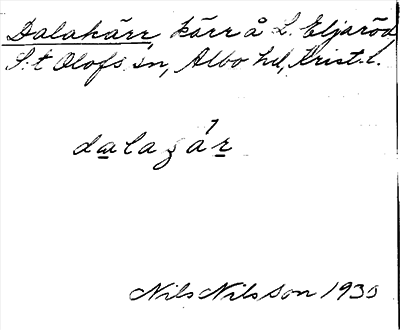 Dalakärr, kärr å L. Eljaröd,
S:t Olofs sn, Albo hd, Krist. l.
dalagár
Nils Nilsson 1930